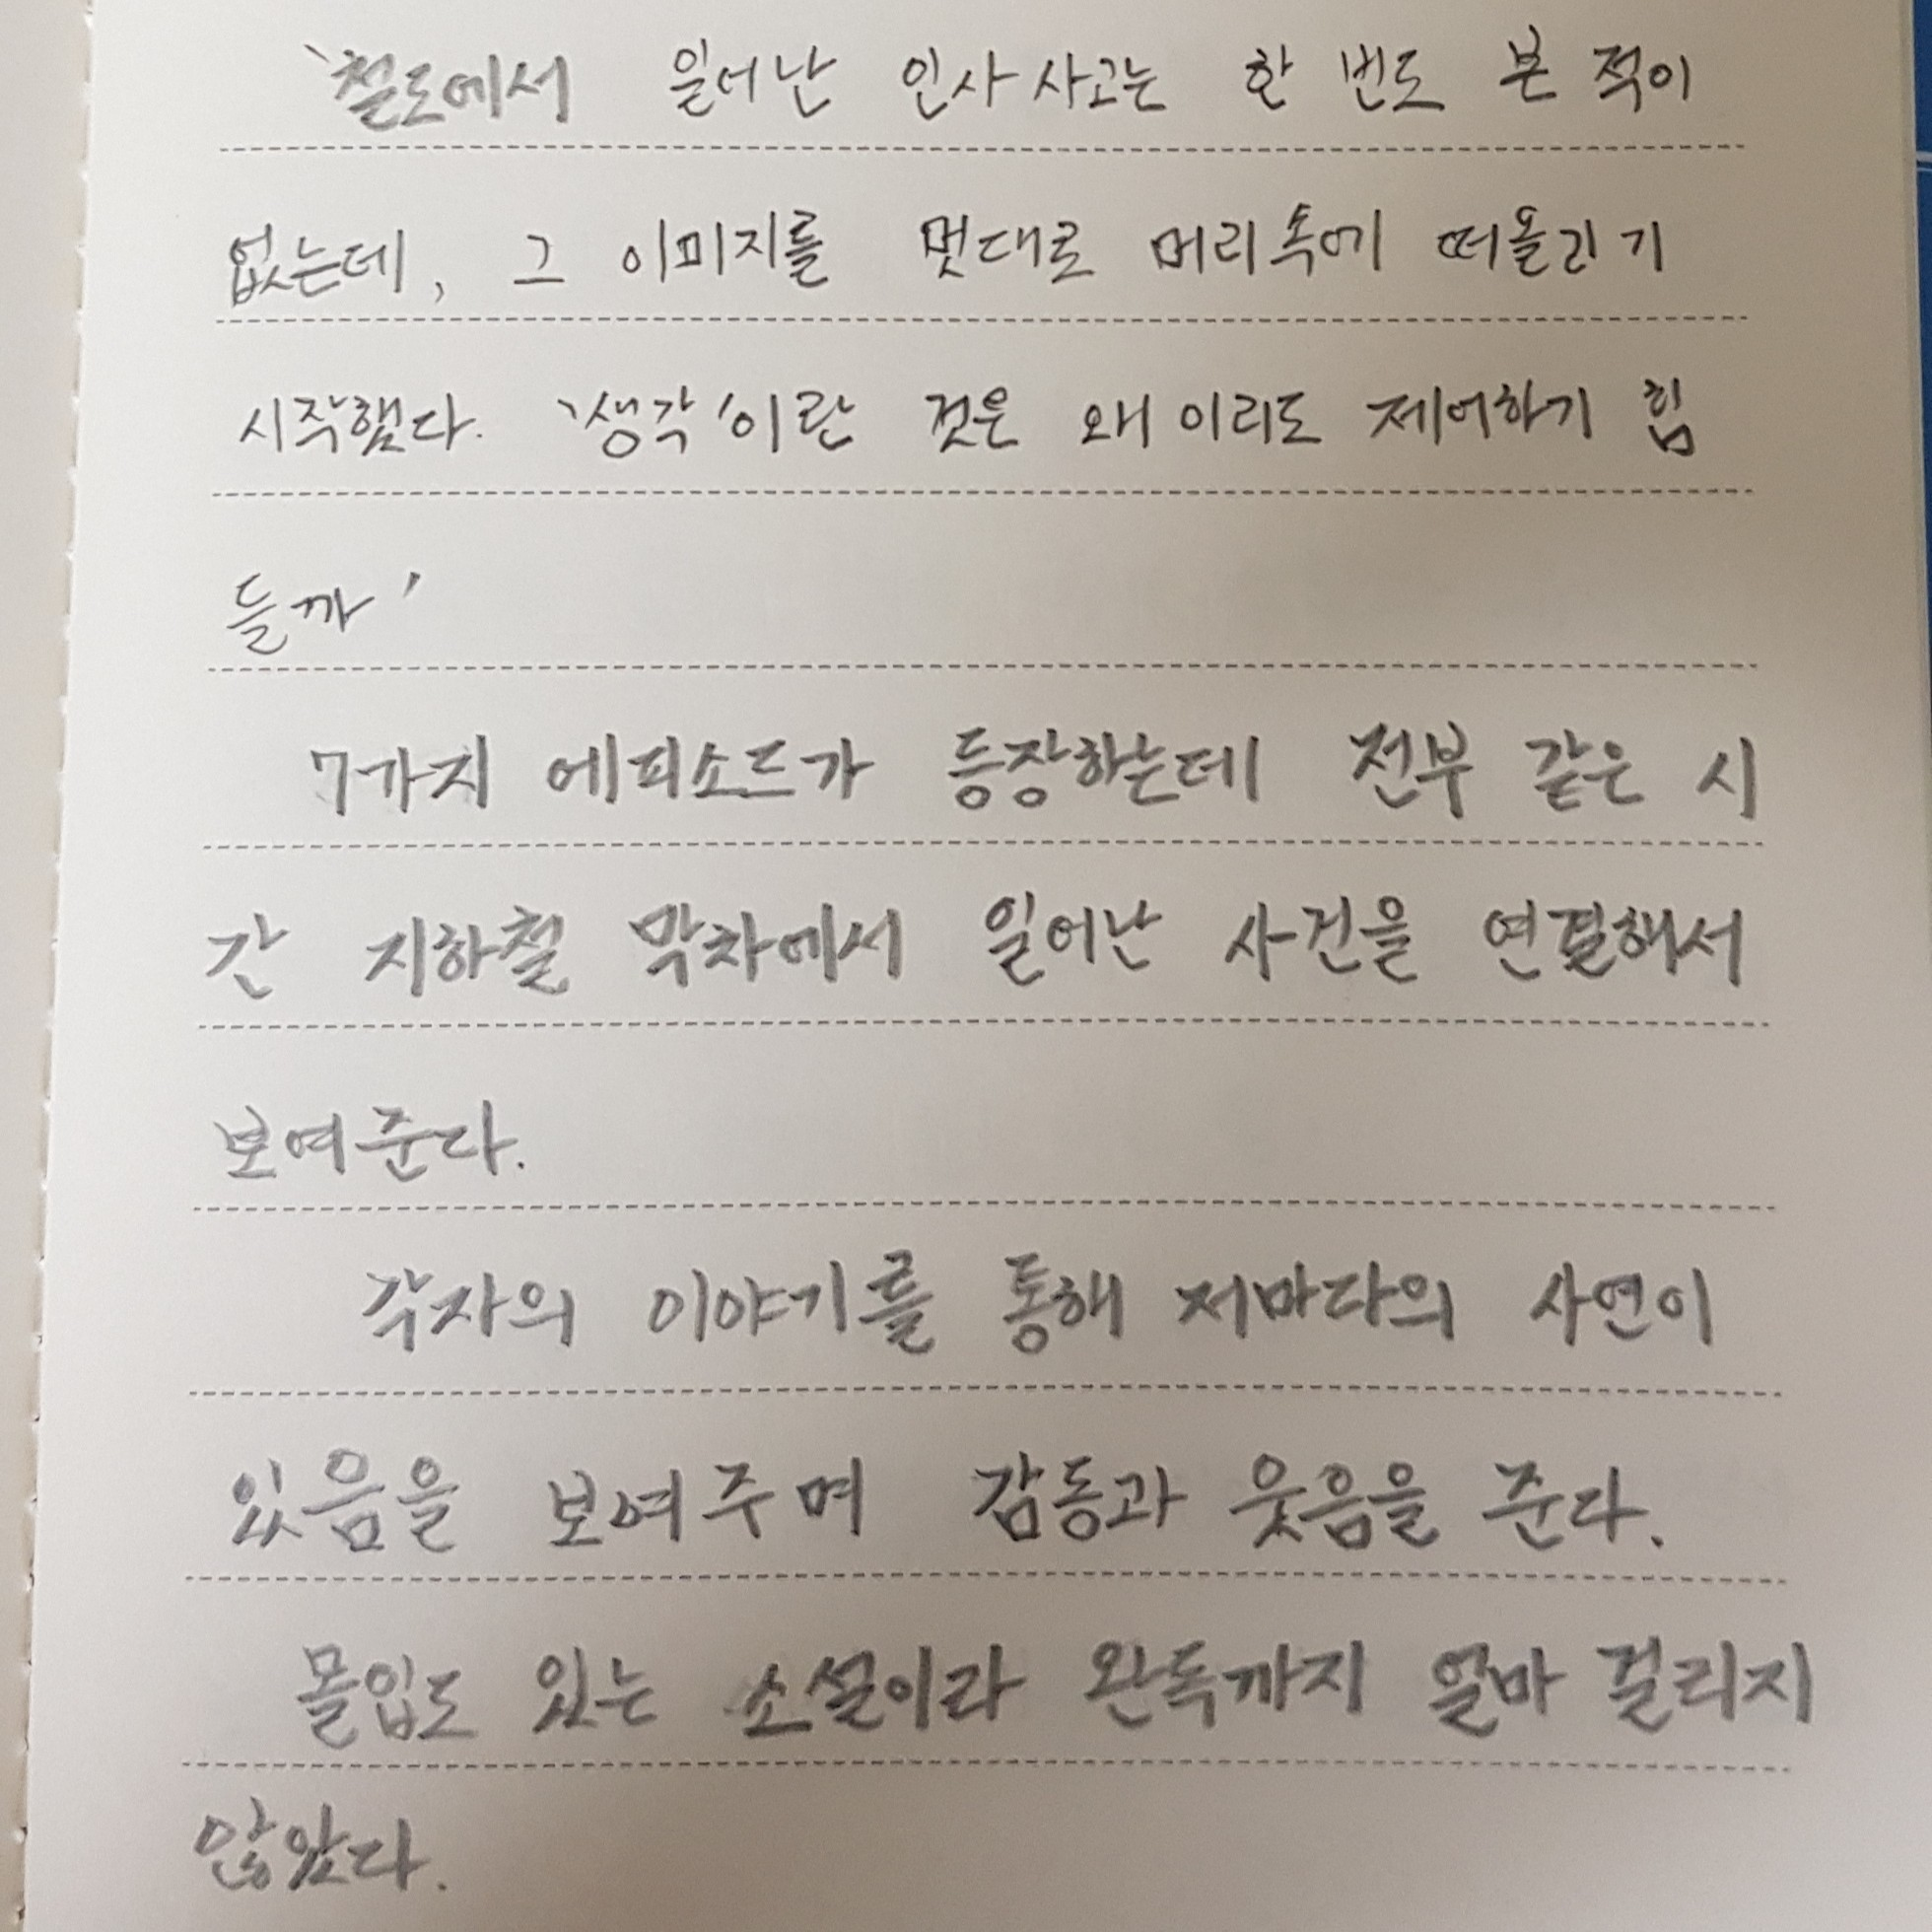 '철도에서 일어난 인사사고는 한 번도 본 적이
없는데, 그 이미지를 멋대로 머리속에 떠올리기
시작했다. '생각'이란 것은 왜 이리도 제어하기 힘
들까'
7가지 에피소드가 등장하는데 전부 같은 시
간 지하철 막차에서 일어난 사건을 연결해서
보여준다.
각자의 이야기를 통해 저마다의 사연이
있음을 보여주며 감동과 웃음을 준다.
몰입도 있는 소설이라 완독까지 얼마 걸리지
않았다.